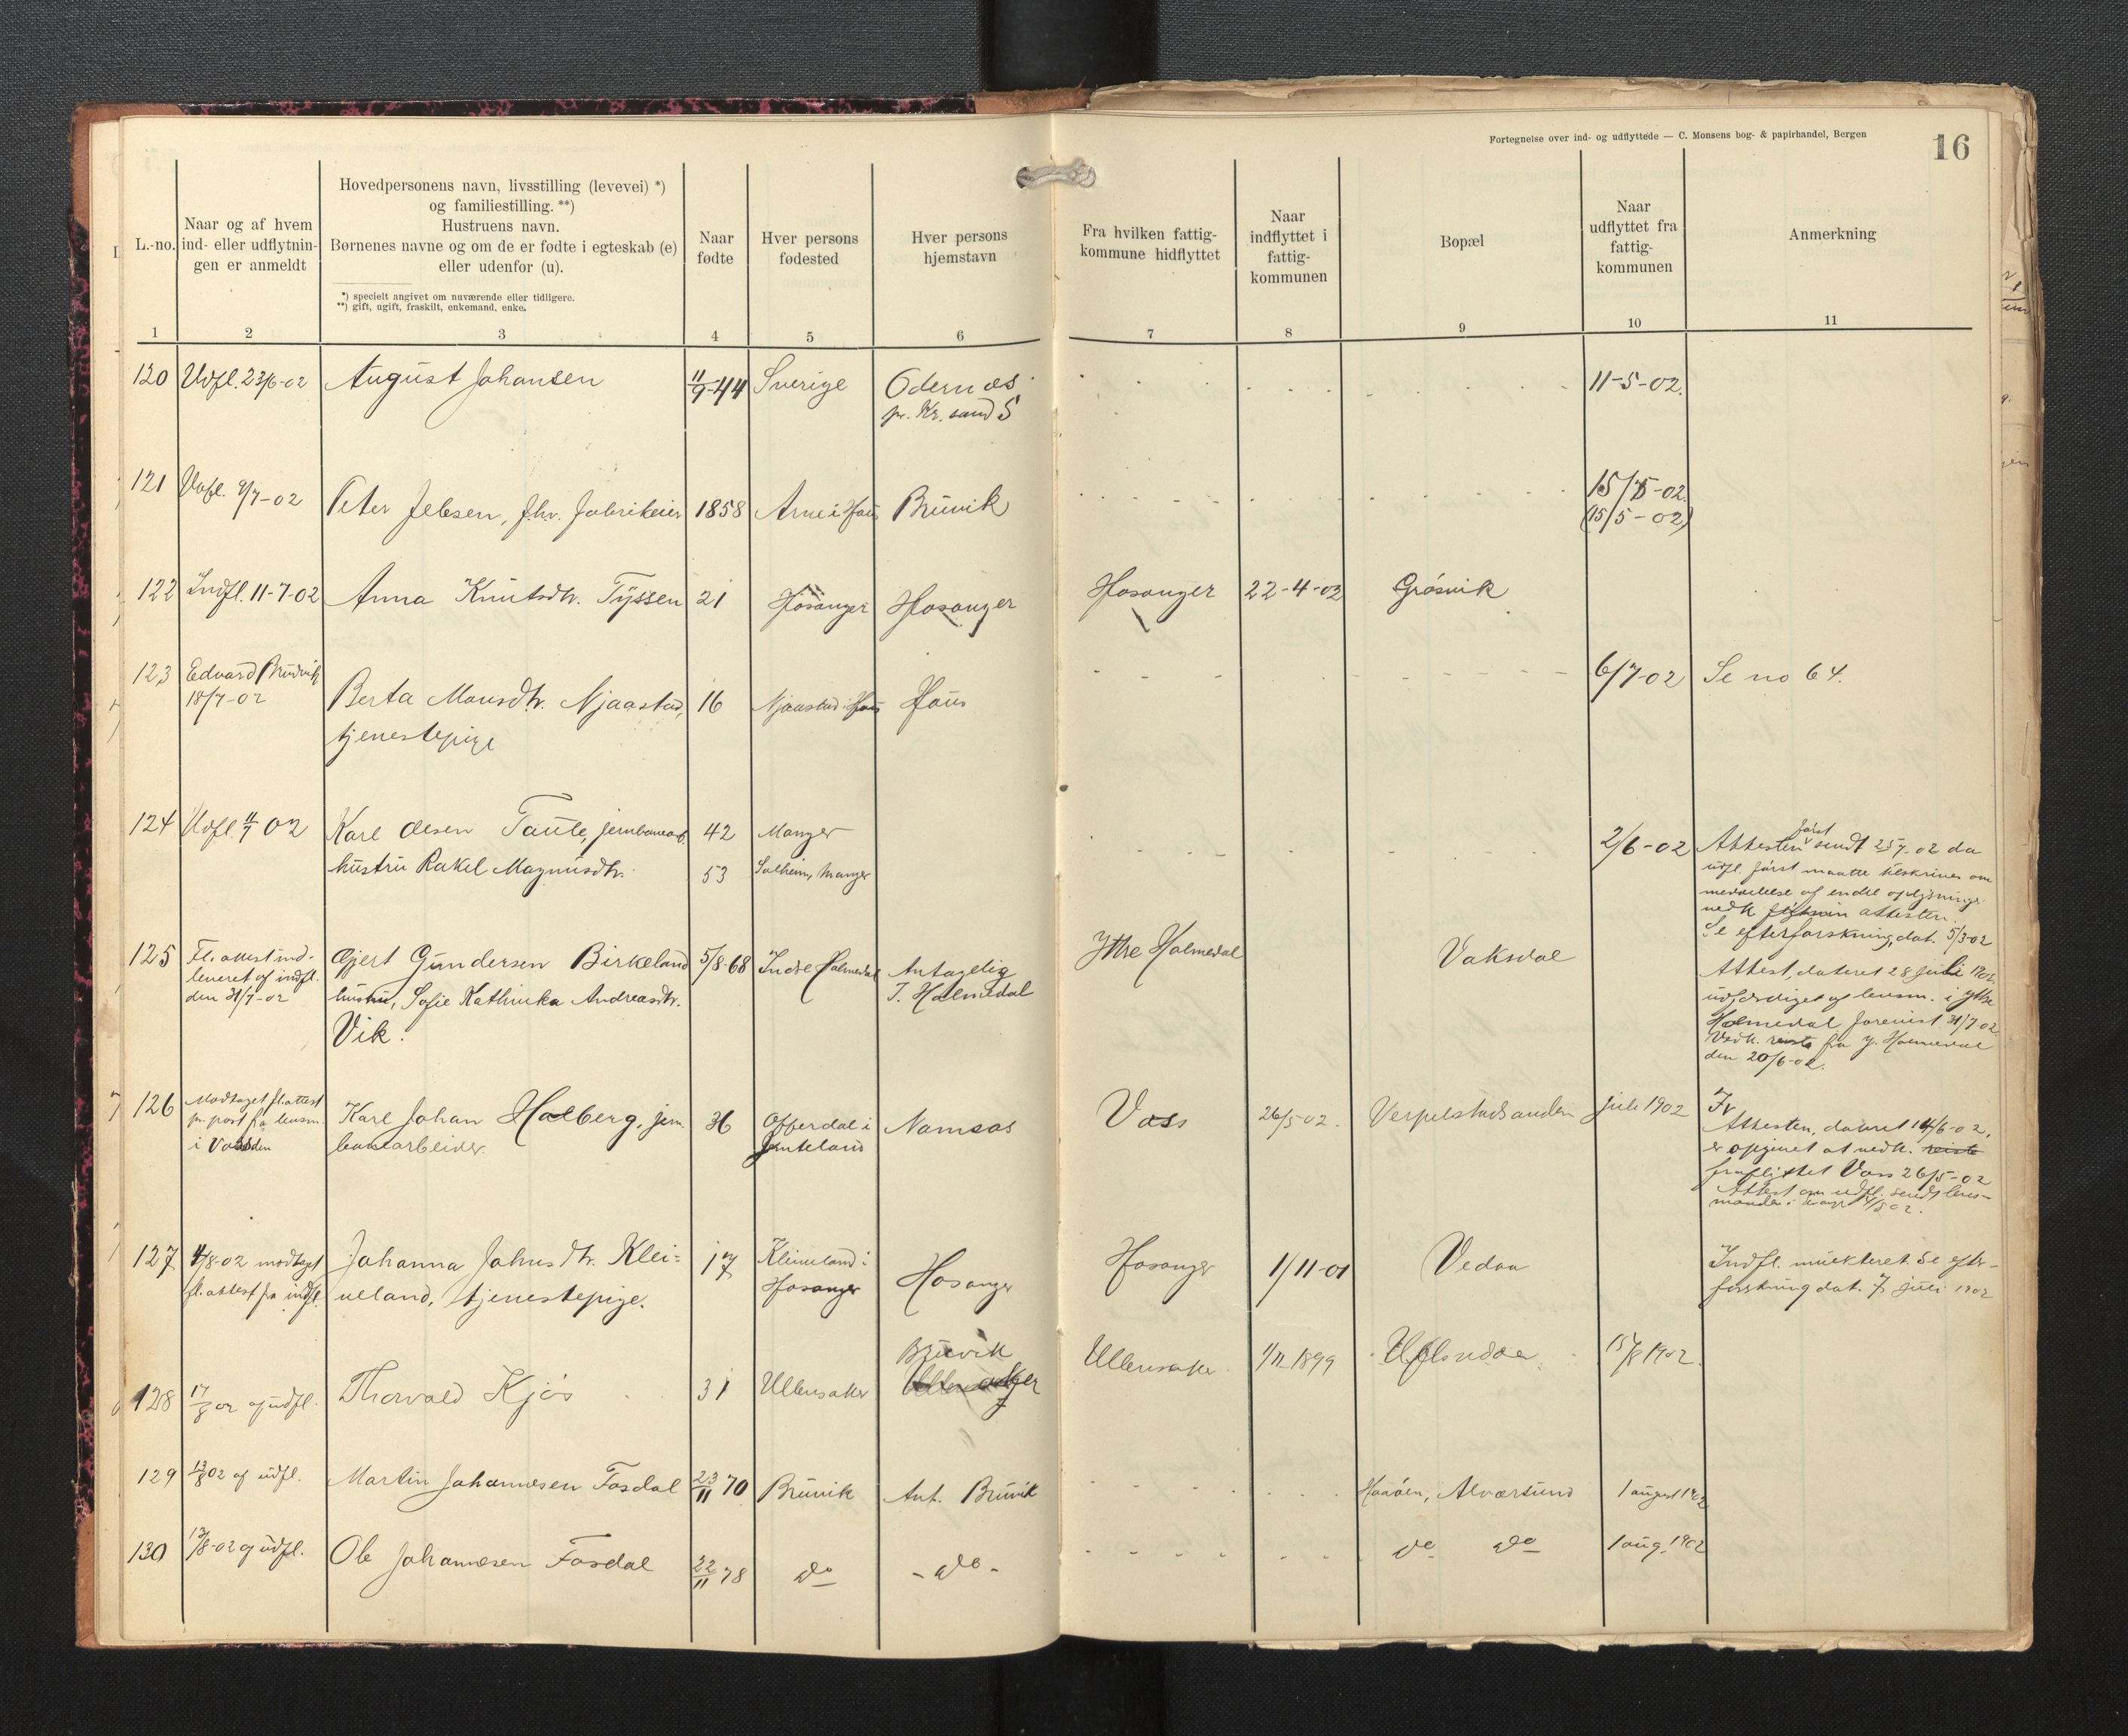 Fortegnelse over ind- og udflyttede — C. Monsens bog- & papirhandel, Bergen
16
L.-no.
Naar og af hvem
ind- eller udflytnin-
gen er anmeldt
Hovedpersonens navn, livsstilling (levevei) *)
og familiestilling. **)
Hustruens navn.
Børnenes navne og om de er fødte i egteskab (e)
eller udenfor (u).
*) specielt angivet om nuværende eller tidligere.
**) gift, ugift, fraskilt, enkemand, enke.
Naar
fødte
Hver persons
fødested
Hver persons
hjemstavn
Fra hvilken fattig-
kommune hidflyttet
Naar
indflyttet i
fattig-
kommunen
Bopæl
Naar
udflyttet fra
fattig-
kommunen
Anmerkning
1 2 3 4 5 6 7 8 9 10 11
120 Udfl. 23/6-02 August Johansen 11/9-44 Sverige Odernæs
pr. Kr.sand S
11-5-02.
121 Udfl. 9/7-02 Peter Jebsen, fhv. fabrikeier 1858 Arne i Haus Bruvik
15/5-02.
(15/5-02)
122 Indfl. 11-7-02 Anna Knutsdtr. Tyssen 21 Hosanger Hosanger Hosanger 22-4-02 Grøsvik
123 Edvard Bruvik
18/7-02
Berta Monsdtr. Njaastad,
tjenestepige
16 Njaastad i Haus Haus 6/7-02 Se no 64.
124 Udfl. 11/7 02 Karl Olsen Taule, jernbanearb.
hustru Rakel Magnusdtr.
42 Manger
53 Solheim, Manger
2/6-02
Attesten først sendt 25/7-02 da
udfl. først maatte tilskrives om
meddelelse af endel oplysninger
vedk. attesten.
125 Fl. attest ind-
leveret af indfl.
den 31/7-02
Gjert Gundersen Birkeland
hustru, Sofie Kathinka Andreasdtr.
Vik.
5/8-68 Indre Holmedal Antagelig
I. Holmedal
Ytre Holmedal Vaksdal
Se efterforskning, dat. 5/3-02
Attest, dateret 28 juli 1902,
udfærdiget af lensm. i ytre
Holmedal forevist 31/7 02.
Vedk. reiste fra y. Holmedal
den 20/6-02.
126 Modtaget fl. attest
pr. post fra lensm.
i Vossden
Karl Johan Halberg, jern
banearbeider.
36 Offerdal i
Jemteland
Namsos Voss 26/5-02. Verpelstadsanden juli 1902
Fr
Attesten, dateret 14/6-02,
er opgivet at vedk. reiste
fraflyttet Voss 26/5-02
Attest om udfl. sendt lens-
manden i
127 4/8-02 modtaget
fl. attest fra indfl.
Johanna Johnsdtr. Klei=
veland, tjenestepige.
17 Kleiveland i
Hosanger
Hosanger Hosanger 1/11-01 Vedaa
Indfl. mulkteret. Se efter-
forskning dat. 7 juli 1902
128 17/8 02 af udfl. Thorvald Kjøs 31 Ullensaker Bruvik
Ullensaker
Ullensaker 1/11 1899 15/8 1902.
129 13/8 02 af udfl. Martin Johannesen Fosdal 23/11 70 Bruvik Ant. Bruvik Haaøen, Alversund 1 august 1902
130 13/8-02 af udfl. Ole Johannesen Fosdal 22/11 78 do - do - do do 1 aug. 1902